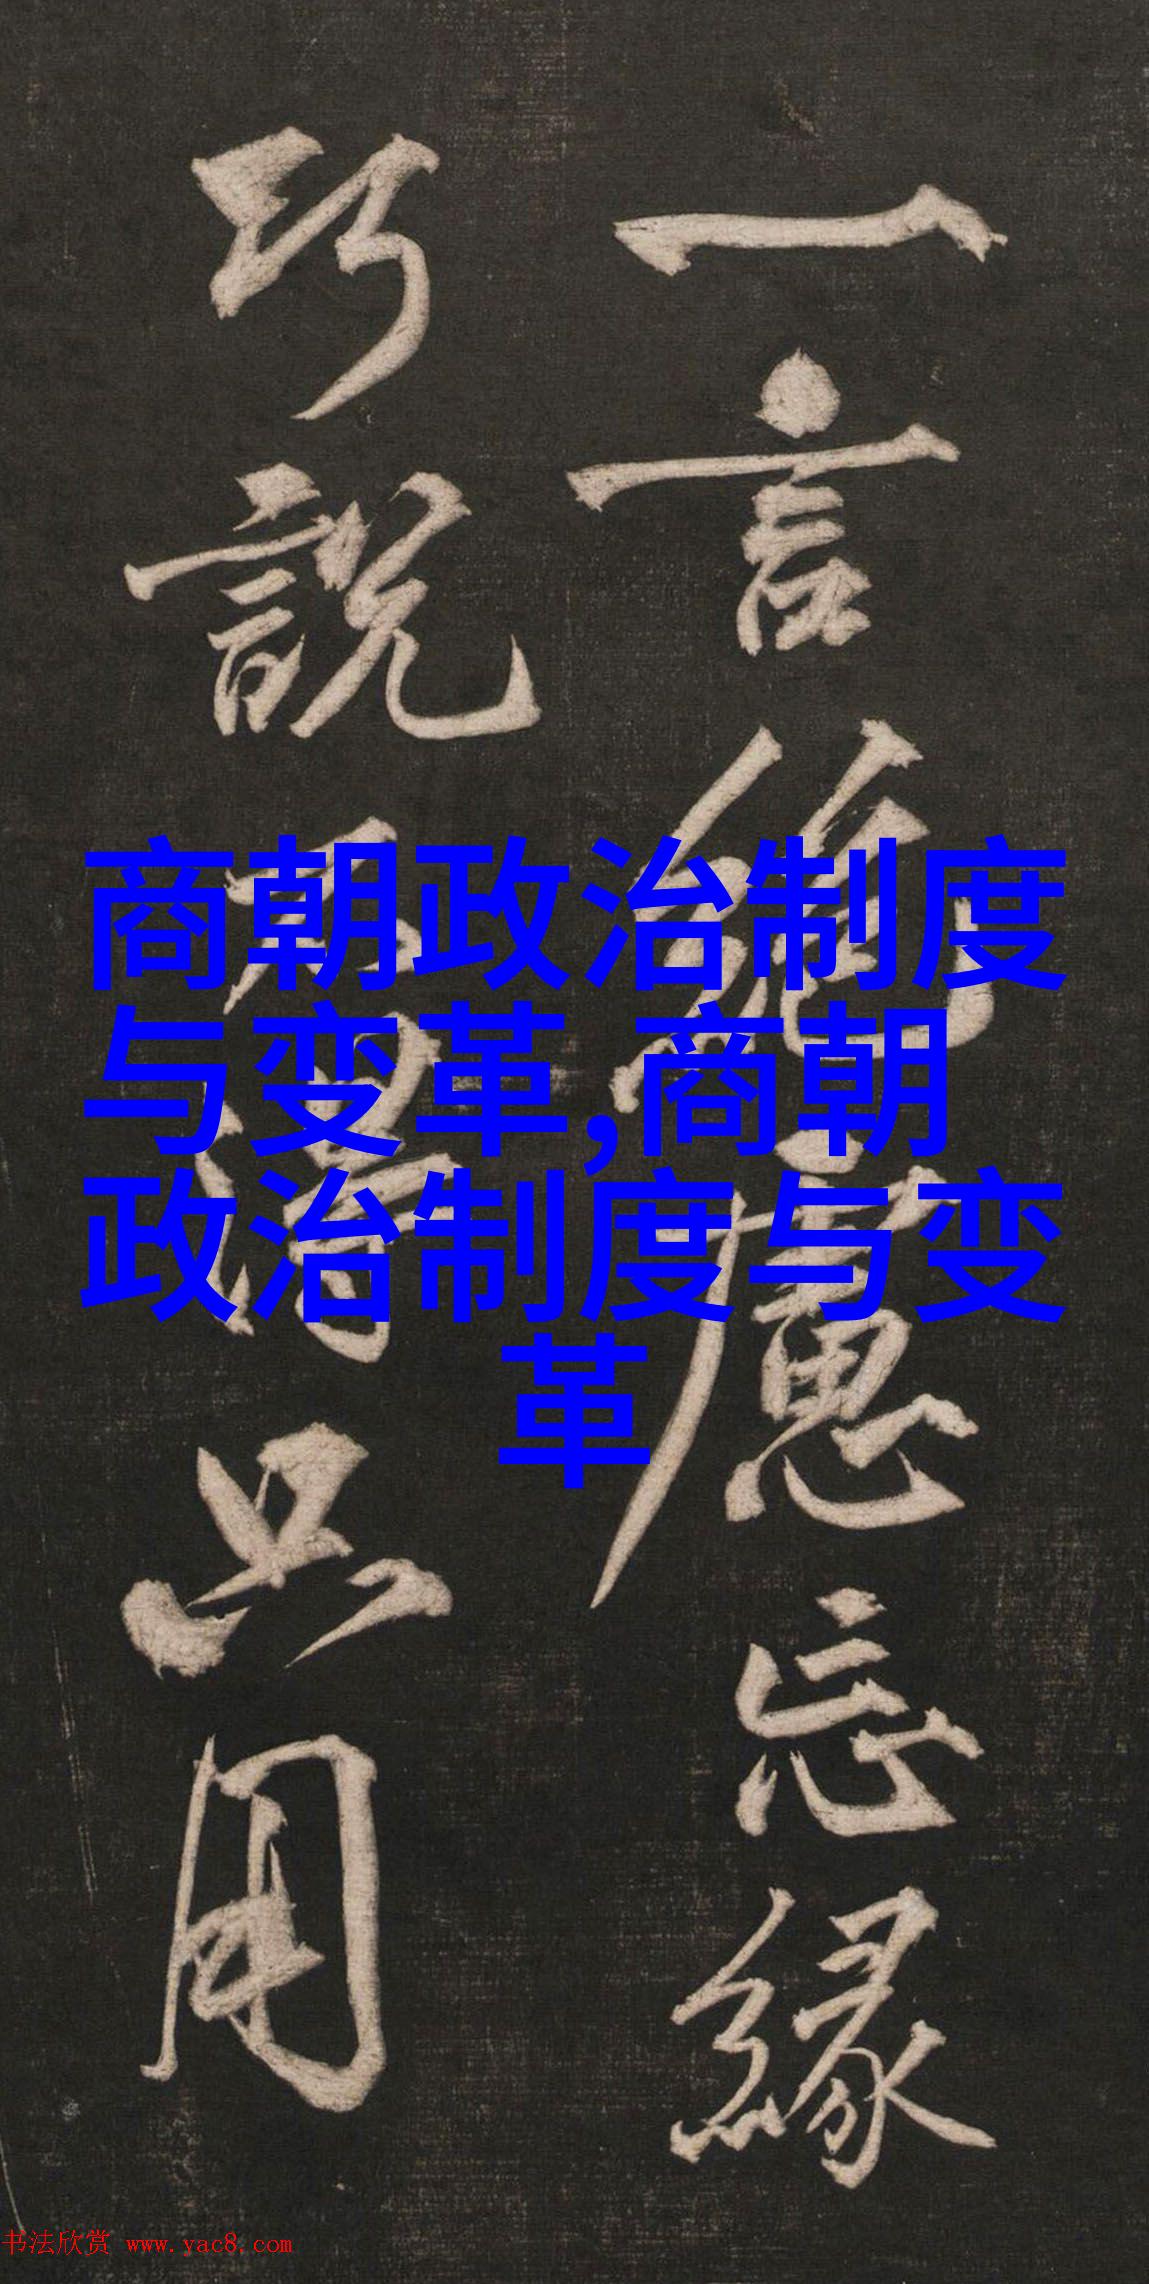 一言絶慮忘緣
巧說不得只用
商朝政治制度
与变革,商朝
政治制度与变
革
书法欣赏 www.yac8.com